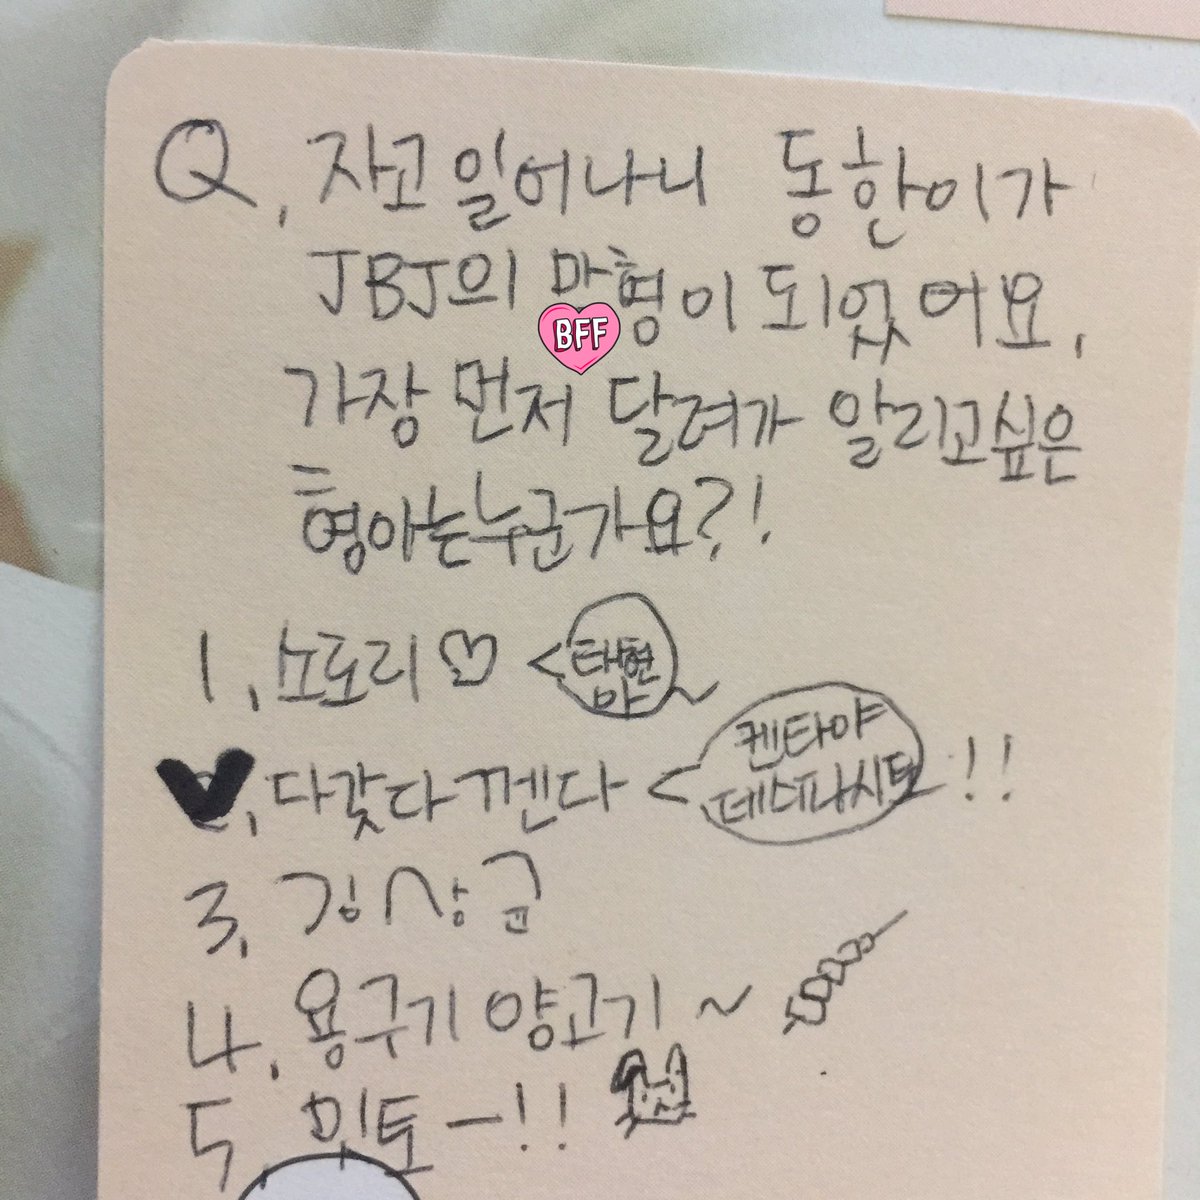 Q. 자고 일어나니 동한이가
JBJ의 마형이 되었어요.
BFF
가장 먼저 달려가 알리고싶은
형아는누군가요?!
1. 소로리♡ <태현야~
2. 다갖다껜다 <켄타야 데스파시토!!
3. 김상균
4. 용구기 양고기~
5. 믹토ー!!